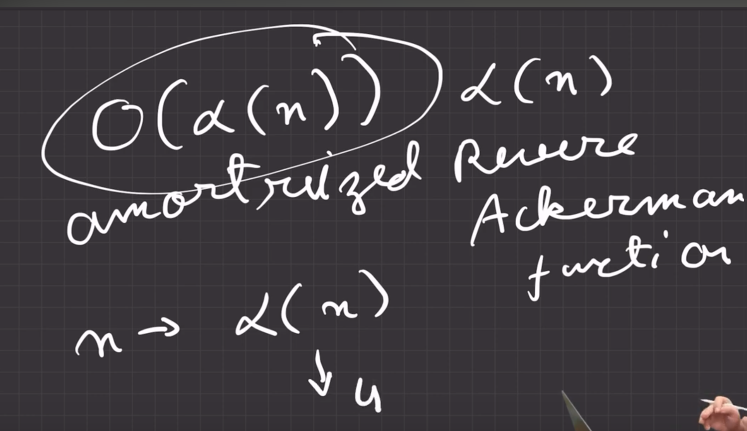 O(α(n)) α(n)
amortruized Revere
Ackerman
function
n → α(n)
↓ 4